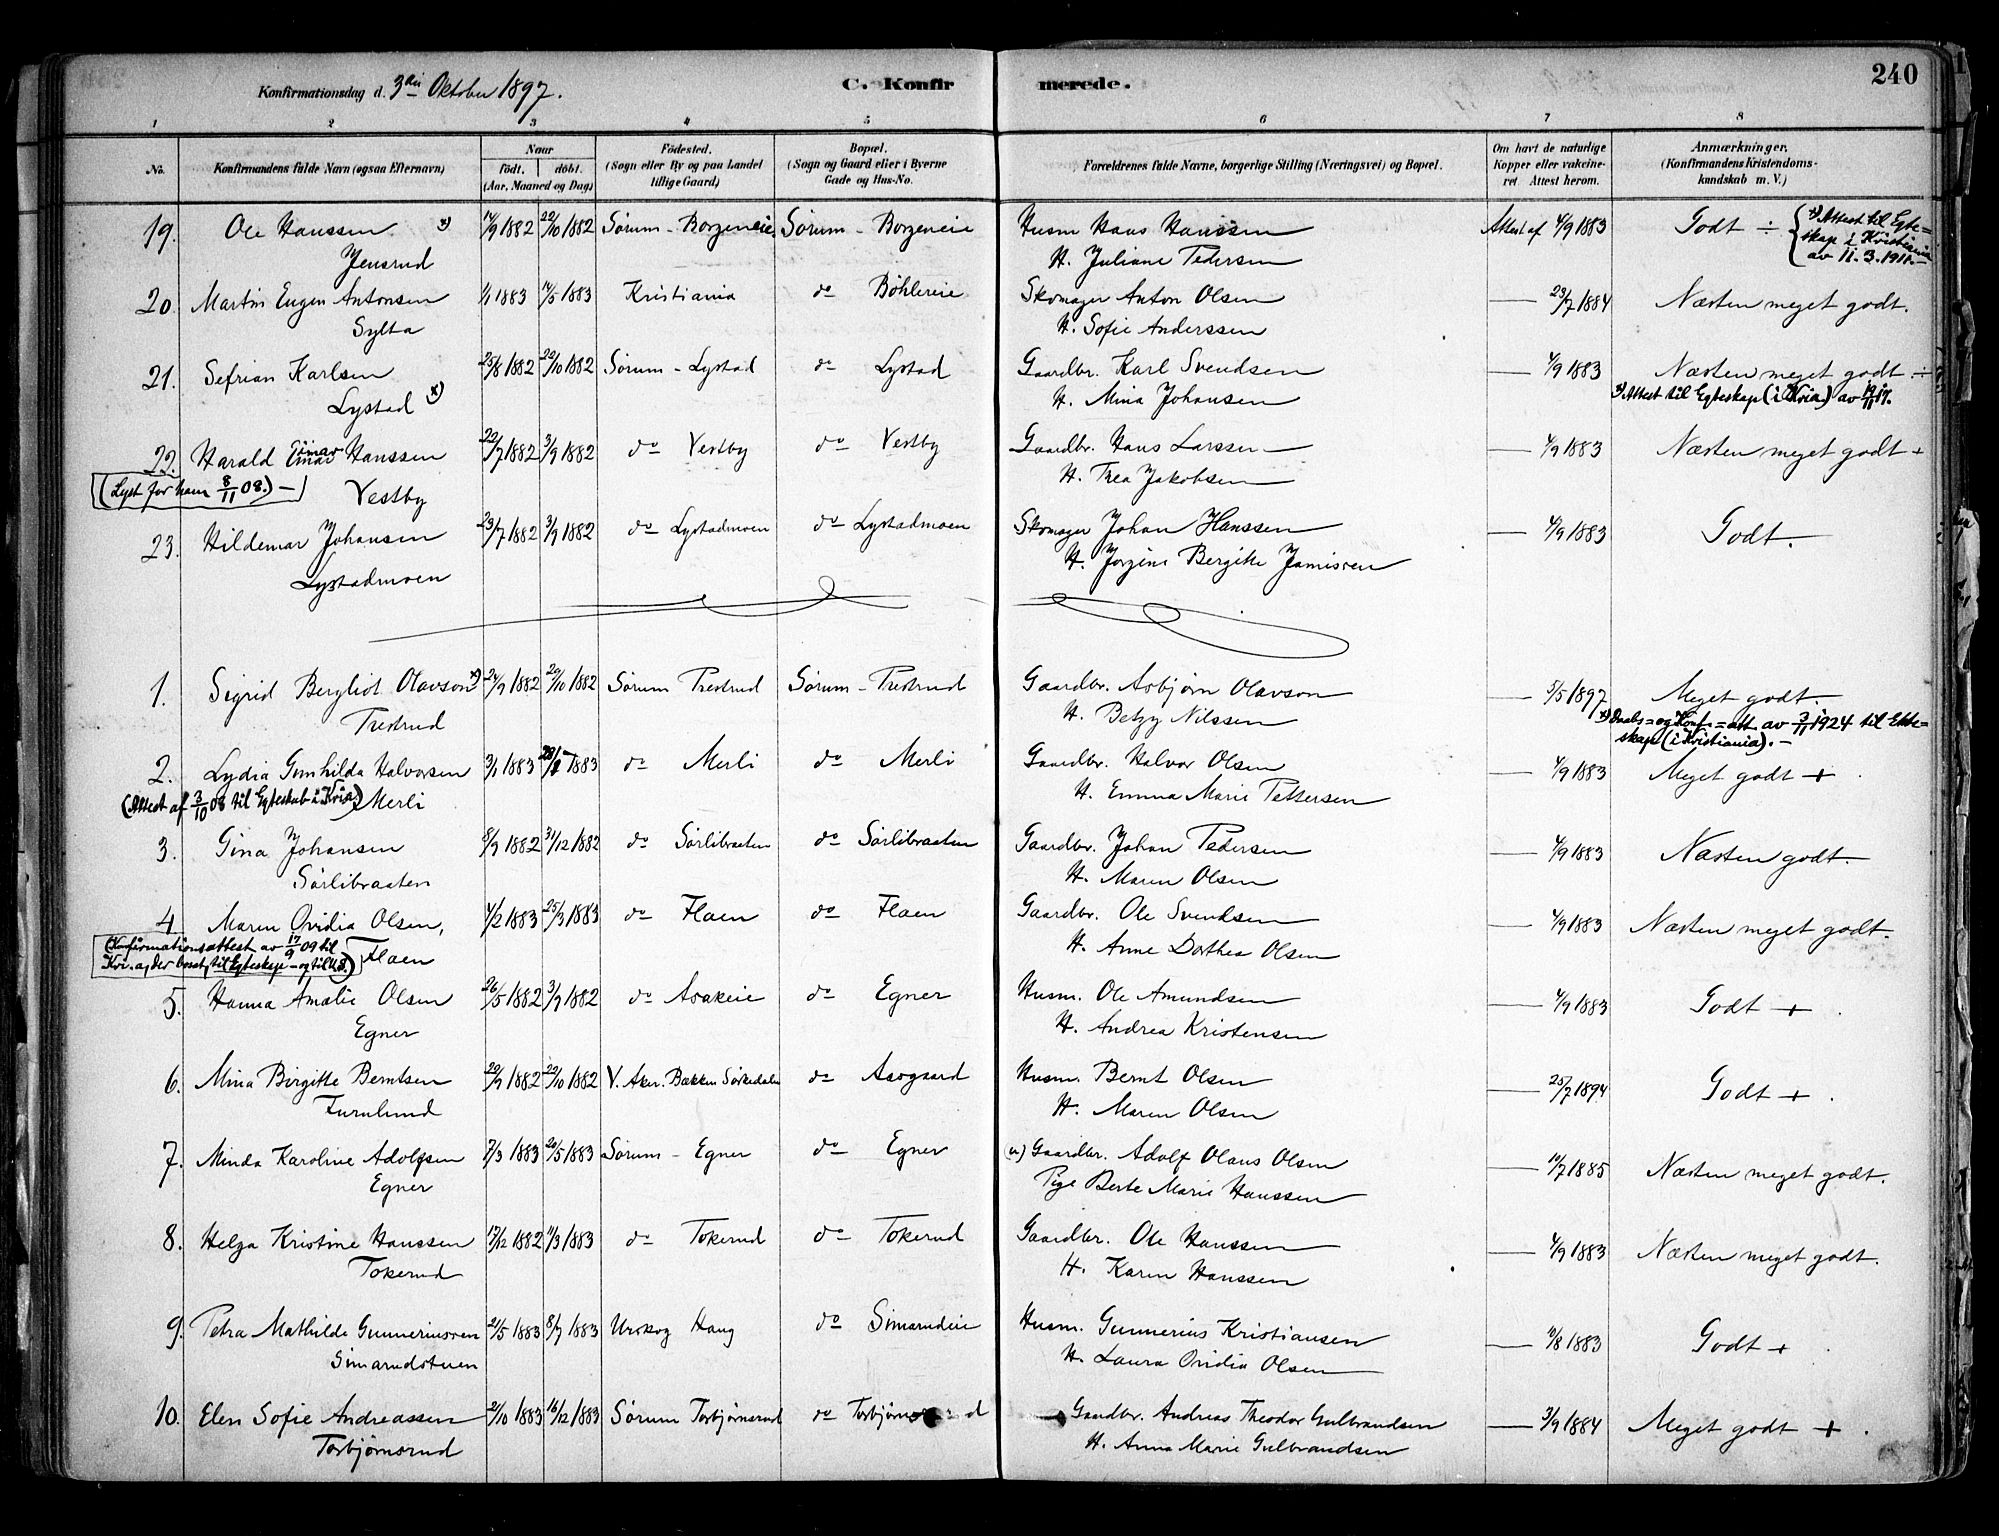 Konfirmationsdag d. 3die Oktober 1897.
C. Konfirmerede.
240
1 2 3 4 5 6 7 8
No. Konfirmandens fulde Navn (ogsaa Efternavn) Naar født. døbt. (Aar, Maaned og Dag) Fødested. (Sogn eller By og paa Landet tillige Gaard) Bopæl. (Sogn og Gaard eller i Byerne Gade og Hus-No. Forældrenes fulde Navne, borgerlige Stilling (Næringsvei) og Bopæl. Om havt de naturlige Kopper eller vakcineret. Attest herom. Anmærkninger. (Konfirmandens Kristendomskundskab m. V.)
19. Ole Hanssen x) 14/9 1882 22/10 1882 Sørum - Borgeneie. Sørum - Borgeneie Husm Hans Hanssen Attest af 4/9 1883 Godt ÷ x) Attest til Egte=
skap i Kristiania
av 11.3.1911.—
Jensrud H. Juliane Pedersen
20. Martin Eugen Antonsen 1/1 1883 14/5 1883 Kristiania do Böhlereie Skomager Anton Olsen — 23/7 1884 Næsten meget godt.
Sylta H. Sofie Anderssen
21. Sefrian Karlsen 25/8 1882 22/10 1882 Sørum - Lystad do Lystad Gaardbr. Karl Svendsen — 4/9 1883 Næsten meget godt ÷
Lystad x) H. Mina Johansen x) Attest til Egteskap (i Kria) av 19/11 17.
22. Harald Einar Hanssen 22/7 1882 3/9 1882 do Vestby do Vestby Gaardbr. Hans Larssen — 4/9 1883 Næsten meget godt +
(Lyst for ham 8/11 08.) — Vestby H. Trea Jakobsen
23. Hildemar Johansen 23/7 1882 3/9 1882 do Lystadmoen do Lystadmoen Skomager Johan Hanssen — 4/9 1883 Godt.
Lystadmoen H. Jorgine Bergitte Jamissen
1. Sigrid Bergliot Olavson x) 24/9 1882 29/10 1882 Sørum Prestrud Sørum - Prestrud Gaardbr. Asbjørn Olavson — 5/5 1897 Meget godt.
Prestrud H. Betzy Nilssen x) Daabs= og Konf.=att. av 3/11 1924 til Ekte=
skap (i Kristiania).—
2. Lydia Gunhilda Halvorsen 3/1 1883 1883 do Merli do Merli Gaardbr. Halvor Olsen — 4/9 1883 Meget godt +
(Attest af 3/10 08 til Egteskab i Kria.) Merli H. Emma Marie Pettersen
3. Gina Johansen 8/9 1882 31/12 1882 do Sørlibraaten do Sørlibraaten Gaardbr. Johan Pedersen — 4/9 1883 Næsten godt.
Sørlibraaten H. Maren Olsen
4. Maren Ovidia Olsen, 4/2 1883 25/3 1883 do Flaen do Flaen Gaardbr. Ole Svendsen — 4/9 1883 Næsten meget godt.
(Konfirmationsattest av 17/9 09 til
til Egteskap Flaen H. Anne Dorthea Olsen
5. Hanna Amalie Olsen 26/5 1882 3/9 1882 do Asakeie do Egner Husm. Ole Amundsen — 4/9 1883 Godt +
Egner H. Andrea Kristensen
6. Mina Birgitte Berntsen 20/9 1882 29/10 1882 V. Aker. Bækken Sørkedalen do Asogaard Husm. Bernt Olsen — 25/7 1894 Godt +
Furulund H. Maren Olsen
7. Minda Karoline Adolfsen 7/3 1883 20/5 1883 Sørum - Egner do Egner (u) Gaardbr. Adolf Olaus Olsen — 10/7 1885 Næsten meget godt.
Egner Pige Berte Marie Hanssen
8. Helga Kristine Hanssen 17/12 1882 11/3 1883 do Tokerud do Tokerud Gaardbr. Ole Hanssen — 4/9 1883 Næsten meget godt.
Tokerud H. Karen Hanssen
9. Petra Mathilde Gunneriussen 21/5 1883 8/7 1883 Urskog Haug do Simarudeie Husm. Gunnerius Kristiansen — 10/8 1883 Godt +
Simarudstuen H. Laura Ovidia Olsen
10. Elen Sofie Andreassen 21/10 1883 16/12 1883 Sørum Torbjørnsrud do Torbjørnsrud Gaardbr. Andreas Theodor Gulbrandsen — 3/9 1884 Meget godt +
Torbjørnsrud H. Anna Marie Gulbrandsen